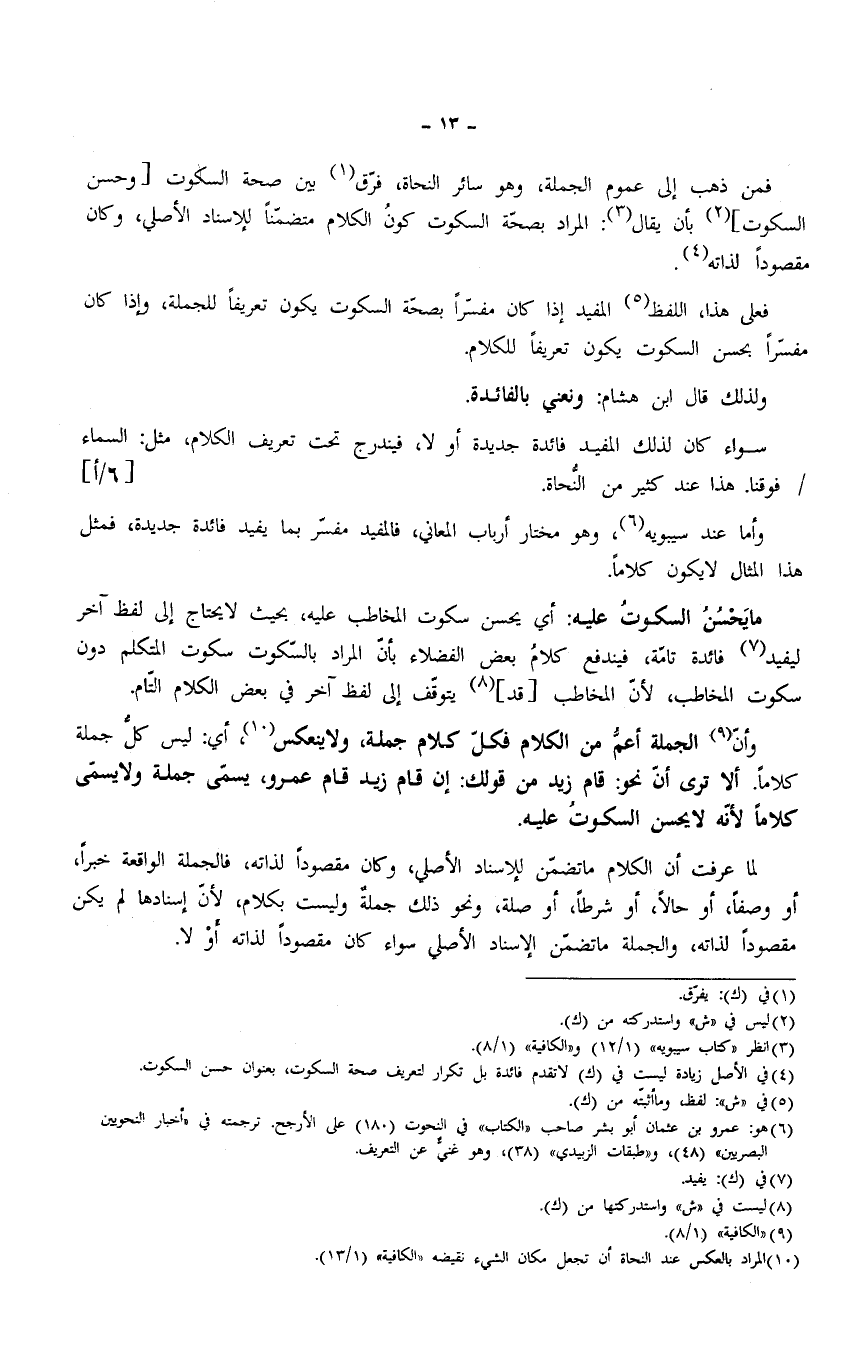 ـ ١٣ ـ
فمن ذهب إلى عموم الجملة، وهو سائر النحاة، فرّق(١) بين صحة السكوت [وحسن
السكوت](٢) بأن يقال(٣): المراد بصحّة السكوت كونُ الكلام متضمّناً للإسناد الأصلي، وكان
مقصوداً لذاته(٤).
فعلى هذا، اللفظ(٥) المفيد إذا كان مفسّراً بصحّة السكوت يكون تعريفاً للجملة، وإذا كان
مفسّراً بحسن السكوت يكون تعريفاً للكلام.
ولذلك قال ابن هشام: ونعني بالفائدة.
سواء كان لذلك المفيد فائدة جديدة أو لا، فيندرج تحت تعريف الكلام، مثل: السماء
/ فوقنا. هذا عند كثير من النُّحاة. [٦/أ]
وأما عند سيبويه(٦)، وهو مختار أرباب المعاني، فالمفيد مفسّر بما يفيد فائدة جديدة، فمثل
هذا المثال لايكون كلاماً.
مايَحْسُنُ السكوتُ عليه: أي يحسن سكوت المخاطب عليه، بحيث لايحتاج إلى لفظ آخر
ليفيد(٧) فائدة تامّة، فيندفع كلامُ بعض الفضلاء بأنّ المراد بالسّكوت سكوت المتكلم دون
سكوت المخاطب، لأنّ المخاطب [قد](٨) يتوقّف إلى لفظ آخر في بعض الكلام التّام.
وأنّ(٩) الجملة أعمُّ من الكلام فكلّ كلام جملة، ولاينعكس(١٠)، أي: ليس كلُّ جملة
كلاماً. ألا ترى أنّ نحو: قام زيد من قولك: إن قام زيد قام عمرو، يسمّى جملة ولايسمّى
كلاماً لأنّه لايحسن السكوتُ عليه.
لما عرفت أن الكلام ماتضمّن للإسناد الأصلي، وكان مقصوداً لذاته، فالجملة الواقعة خبراً،
أو وصفاً، أو حالاً، أو شرطاً، أو صلة، ونحو ذلك جملةٌ وليست بكلام، لأنّ إسنادها لم يكن
مقصوداً لذاته، والجملة ماتضمّن الإسناد الأصلي سواء كان مقصوداً لذاته أَوْ لا.
(١) في (ك): يفرّق.
(٢) ليس في «ش» واستدركته من (ك).
(٣) انظر «كتاب سيبويه» (١٢/١) و«الكافية» (٨/١).
(٤) في الأصل زيادة ليست في (ك) لاتقدم فائدة بل تكرار لتعريف صحة السكوت، بعنوان حسن السكوت.
(٥) في «ش»: لفظ، وماأثبتّه من (ك).
(٦) هو: عمرو بن عثمان أبو بشر صاحب «الكتاب» في النحوت (١٨٠) على الأرجح. ترجمته في «أخبار النحويين
البصريين» (٤٨)، و«طبقات الزبيدي» (٣٨)، وهو غنيٌّ عن التعريف.
(٧) في (ك): يفيد.
(٨) ليست في «ش» واستدركتها من (ك).
(٩) «الكافية» (٨/١).
(١٠) المراد بالعكس عند النحاة أن تجعل مكان الشيء نقيضه «الكافية» (١٣/١).